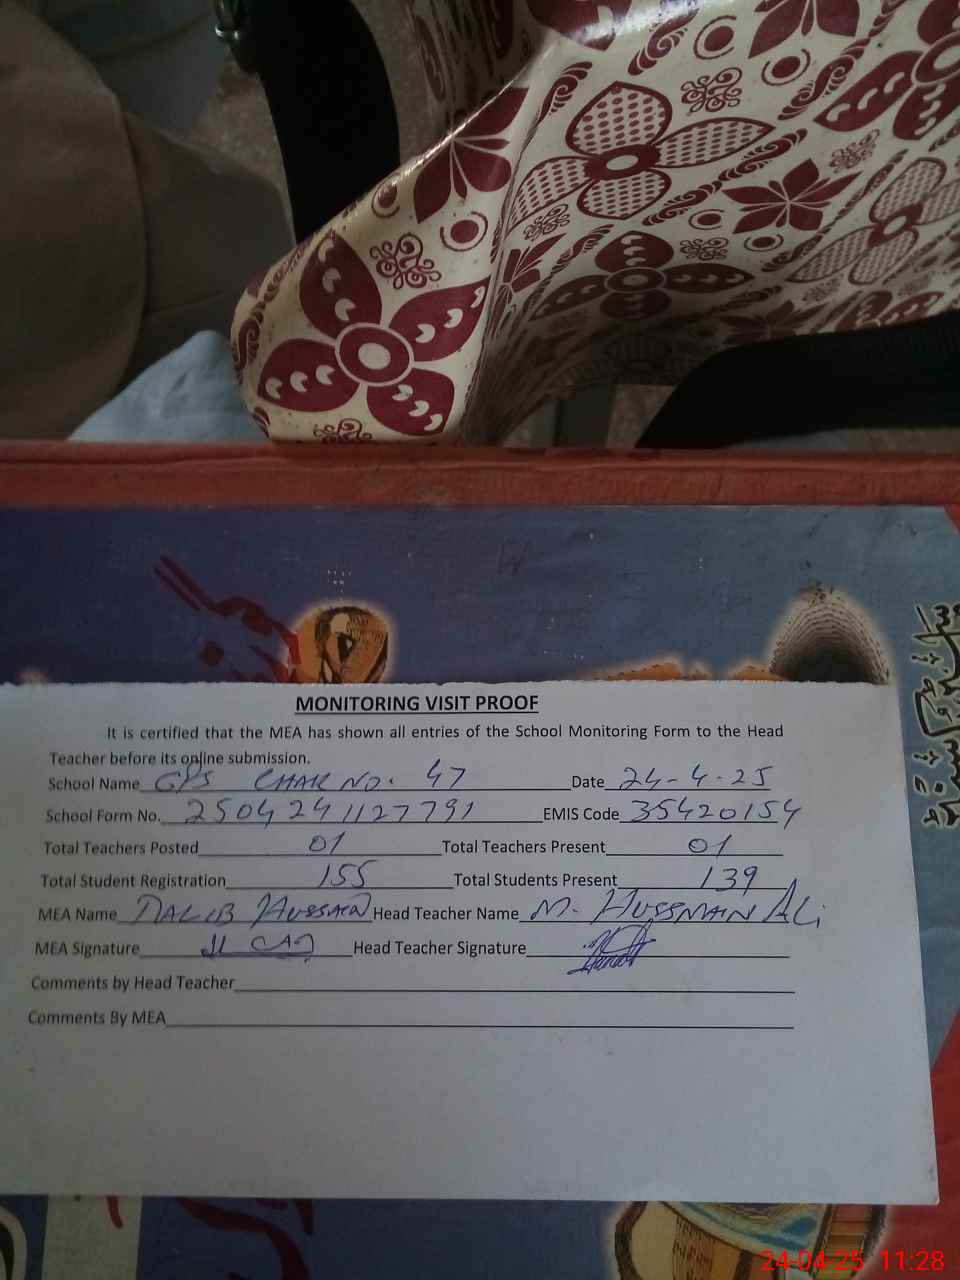 MONITORING VISIT PROOF
It is certified that the MEA has shown all entries of the School Monitoring Form to the Head
Teacher before its online submission.
School Name GPS CHAK NO. 47 Date 24-4-25
School Form No. 250424112 7791 EMIS Code 35420154
Total Teachers Posted 01 Total Teachers Present 01
Total Student Registration 155 Total Students Present 139
MEA Name TALIB HUSSAIN Head Teacher Name M. HUSSNAIN Ali
MEA Signature Head Teacher Signature
Comments by Head Teacher
Comments By MEA
24-04-25 11:28